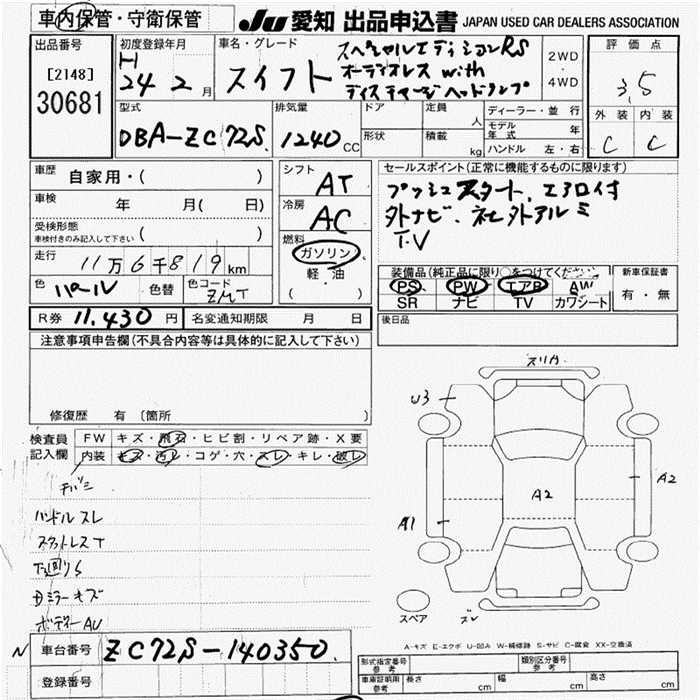 車内保管・守衛保管
JU 愛知 出品申込書 JAPAN USED CAR DEALERS ASSOCIATION
出品番号
[2148]
30681
初度登録年月
H
24 2 月
車名・グレード
スイフト
スペシャルエディションRS
オーディオレス with
ディスチャージヘッドランプ
2WD
・
4WD
評価点
3.5
外装 内装
C C
型式
DBA-ZC72S
排気量
1240 cc
ドア
形状
定員
人
積載
kg
ディーラー・並行
モデル
年式 年
ハンドル 左・右
車歴
自家用・( )
車検
年 月( 日)
受検形態
車検付きのみ記入して下さい ( )
走行
11万6千819km
色 パール 色替 色コード ZMT
シフト
AT
冷房
AC
燃料
ガソリン
軽・油
( )
セールスポイント(正常に機能するものに限ります)
プッシュスタート、エアロ付
外ナビ、社外アルミ
T.V
装備品(純正品に限り○をつけてください)
PS PW エアB AW
SR ナビ TV カワシート
新車保証書
有・無
R券 11,430 円 名変通知期限 月 日
後日品
注意事項申告欄(不具合内容等は具体的に記入して下さい)
修復歴 有 〔箇所
検査員
記入欄
FW キズ・飛石・ヒビ割・リペア跡・X要
内装 キズ・汚レ・コゲ・穴・スレ・キレ・破レ
ハンドルスレ
下廻りS
Dミラーキズ
ボディーAU
スリカ
U3
A2
A2
A1
スペア
スレ
A-キズ E-エクボ U-凹み W-補修跡 S-サビ C-腐食 XX-交換済
N 車台番号 ZC72S-140350
登録番号
形式指定番号
参考
類別区分番号
参考
車庫証明用
参考
長さ cm 幅 cm 高さ cm